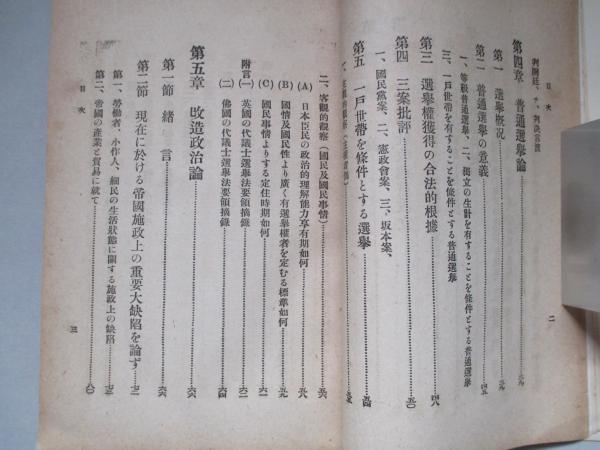 目次
二
判例廷、
第四章 普通選擧論
第一 選擧概況……三九
第二 普通選擧の意義……四五
一、等級普通選擧、二、獨立の生計を有することを條件とする普通選擧
三、一戸世帶を有することを條件とする普通選擧
第三 選擧權獲得の合法的根據……四八
第四 三案批評……五〇
一、國民黨案、二、憲政會案、三、坂本案、
第五 一戸世帶を條件とする選擧……五四
二、客觀的觀察(國民及國民事情)……五六
(A) 日本臣民の政治的理解能力享有期如何……五八
(B) 國情及國民性より廣く有選擧權者を定むる標準如何……五九
(C) 國民事情よりする定住時期如何……六一
附言(一) 英國の代議士選擧法要領摘錄……六二
(二) 佛國の代議士選擧法要領摘錄……六四
第五章 改造政治論……六六
第一節 緒言……六六
第二節 現在に於ける帝國施政上の重要大缺陷を論ず……七二
第一、勞働者、小作人、細民の生活狀態に關する施政上の缺陷……七三
第二、帝國の產業と貿易に就て……八〇
目次
三